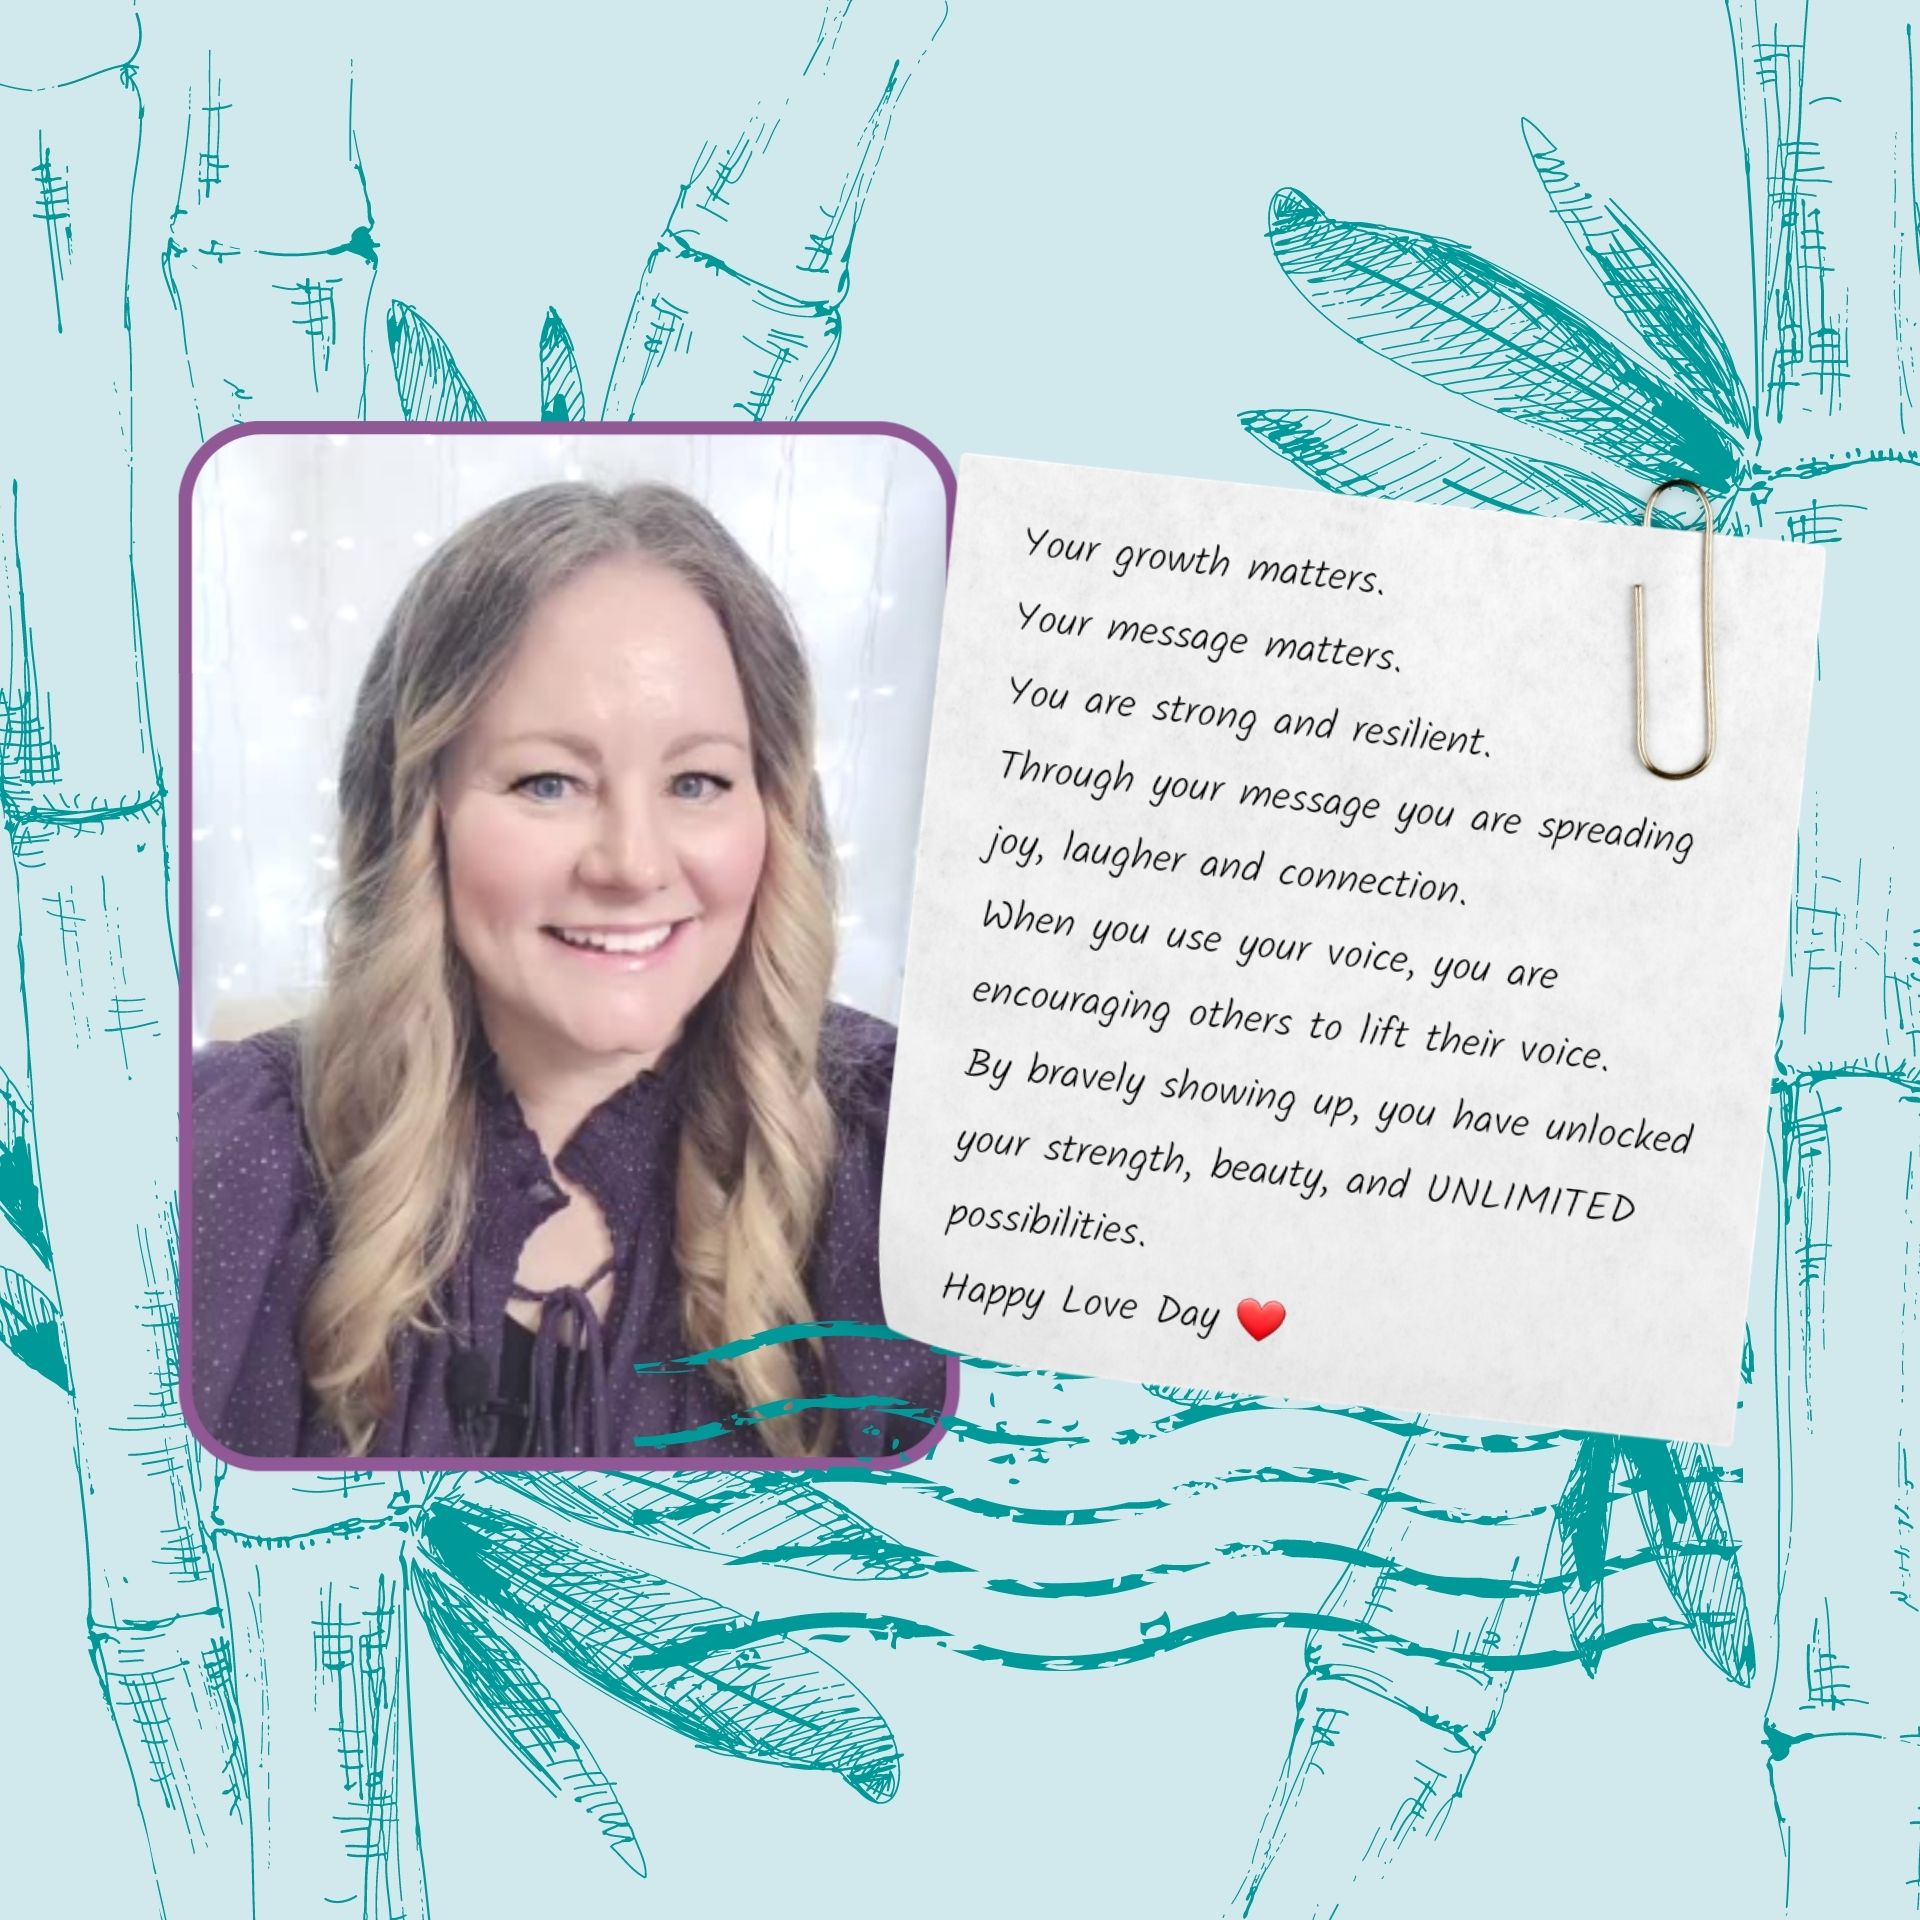 Your growth matters.
Your message matters.
You are strong and resilient.
Through your message you are spreading
joy, laugher and connection.
When you use your voice, you are
encouraging others to lift their voice.
By bravely showing up, you have unlocked
your strength, beauty, and UNLIMITED
possibilities.
Happy Love Day ❤️